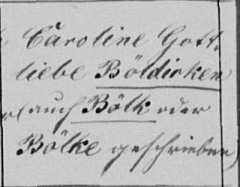 Caroline Gott-
liebe Böldicken
(auch Bölk oder
Bölke geschrieben)